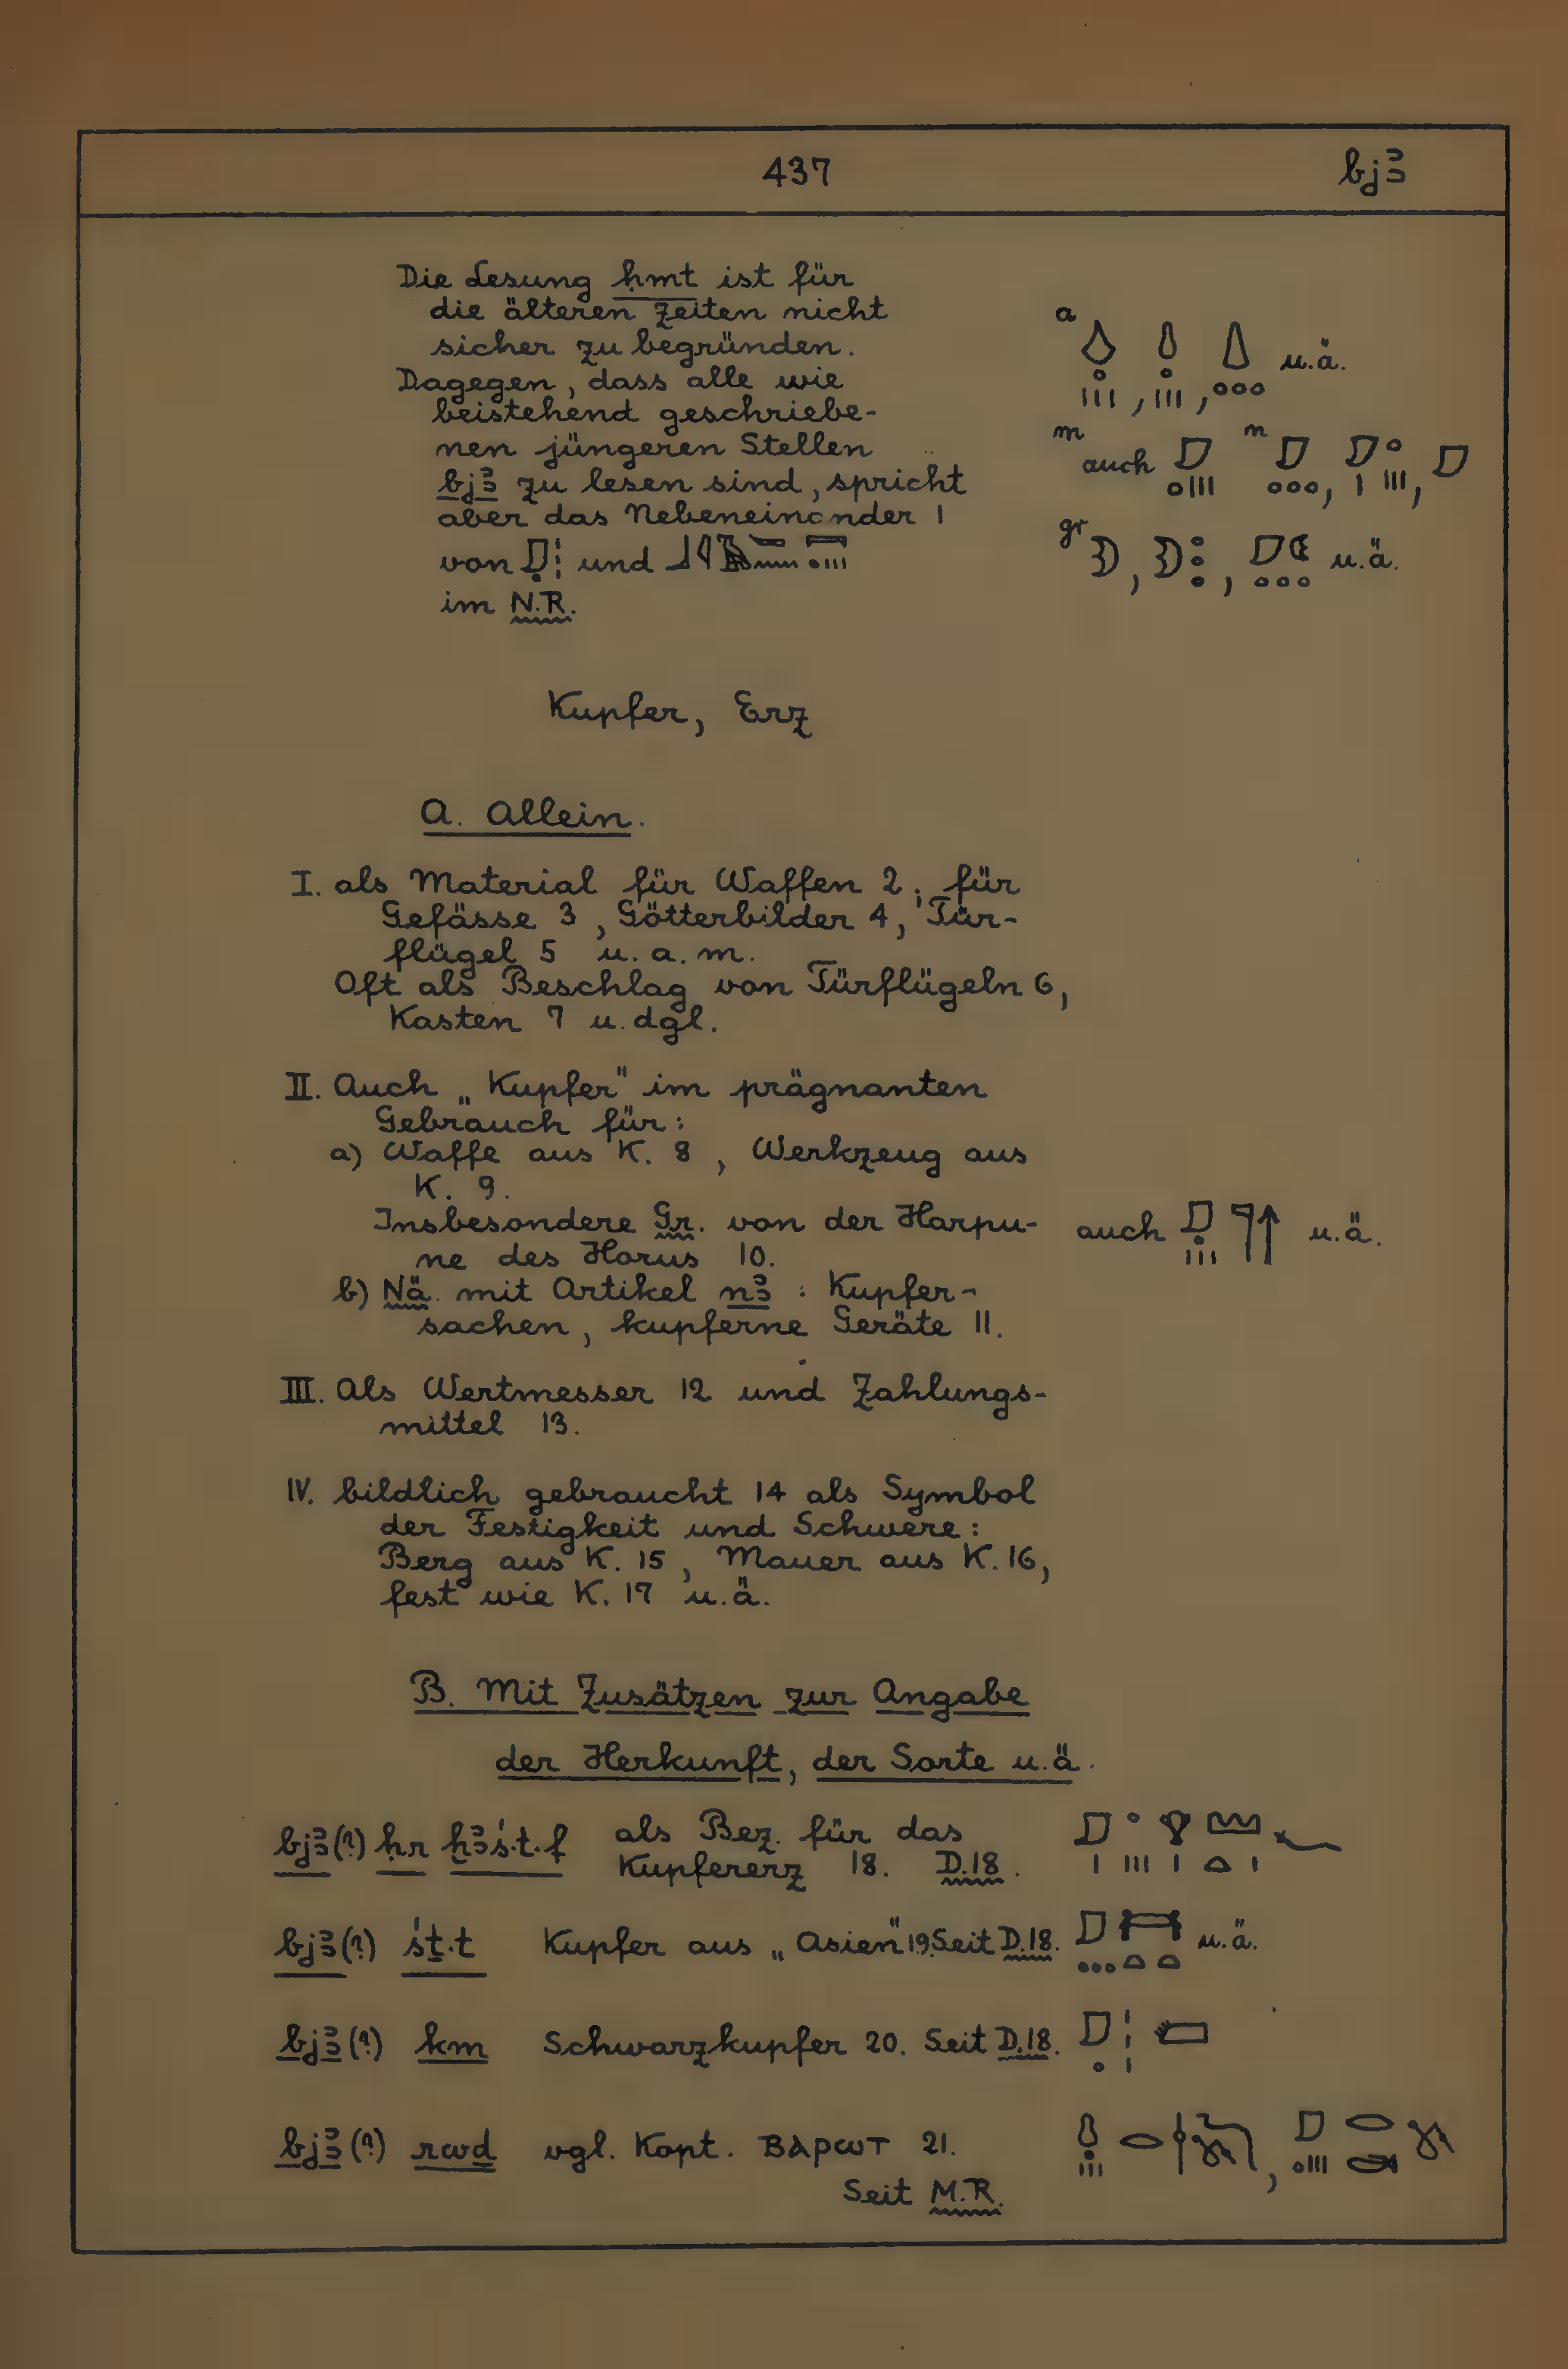 437 bjꜣ
Die Lesung ḥmt ist für
die älteren Zeiten nicht
sicher zu begründen.
Dagegen, dass alle wie
beistehend geschriebe-
nen jüngeren Stellen
bjꜣ zu lesen sind, spricht
aber das Nebeneinander 1
von und
im N.R.
a u.ä.
m auch n
gr u.ä.
Kupfer, Erz
A. Allein.
I. als Material für Waffen 2, für
Gefässe 3, Götterbilder 4, Tür-
flügel 5 u. a. m.
Oft als Beschlag von Türflügeln 6,
Kasten 7 u. dgl.
II. Auch „Kupfer" im prägnanten
Gebrauch für:
a) Waffe aus K. 8, Werkzeug aus
K. 9.
Insbesondere Gr. von der Harpu-
ne des Horus 10.
auch u.ä.
b) Nä. mit Artikel nꜣ: Kupfer-
sachen, kupferne Geräte 11.
III. Als Wertmesser 12 und Zahlungs-
mittel 13.
IV. bildlich gebraucht 14 als Symbol
der Festigkeit und Schwere:
Berg aus K. 15, Mauer aus K. 16,
fest wie K. 17 u.ä.
B. Mit Zusätzen zur Angabe
der Herkunft, der Sorte u.ä.
bjꜣ(?) ḥr ḫꜣś.t.f als Bez. für das
Kupfererz 18. D.18.
bjꜣ(?) śṯ.t Kupfer aus „Asien" 19. Seit D.18. u.ä.
bjꜣ(?) km Schwarzkupfer 20. Seit D.18.
bjꜣ(?) rwḏ vgl. Kopt. ⲃⲁⲣⲱⲧ 21.
Seit M.R.